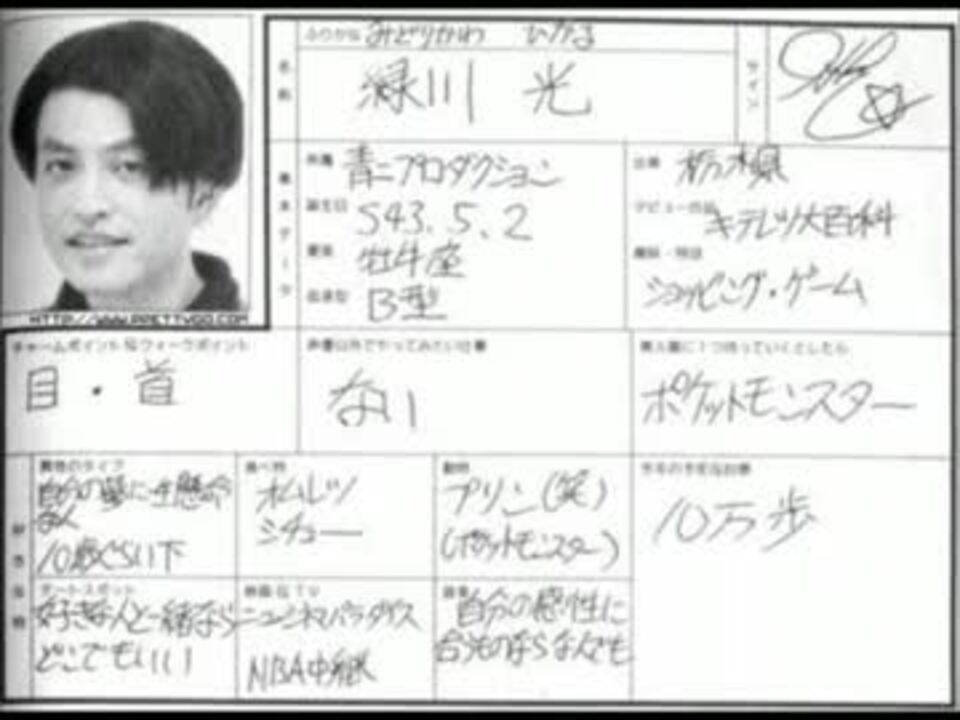 ふりがな みどりかわ ひかる
名前 緑川 光
サイン
所属 青二プロダクション
誕生日 S43.5.2
星座 牡牛座
血液型 B型
基本データ
出身 栃木県
デビュー作品 キテレツ大百科
趣味・特技
ショッピング・ゲーム
HTTP://WWW.PRETTYGO.COM
チャームポイント&ウィークポイント
目・首
声優以外でやってみたい仕事
ない
無人島に1つ持っていくとしたら
ポケットモンスター
異性のタイプ
自分の夢に一生懸命
な人
10歳ぐらい下
食べ物
オムレツ
シチュー
動物
プリン(笑)
(ポケットモンスター)
10万歩
デートスポット
好きな人と一緒なら
どこでもいい
映画&TV
ニューシネマパラダイス
NBA中継
音楽
自分の感性に
合うものならなんでも